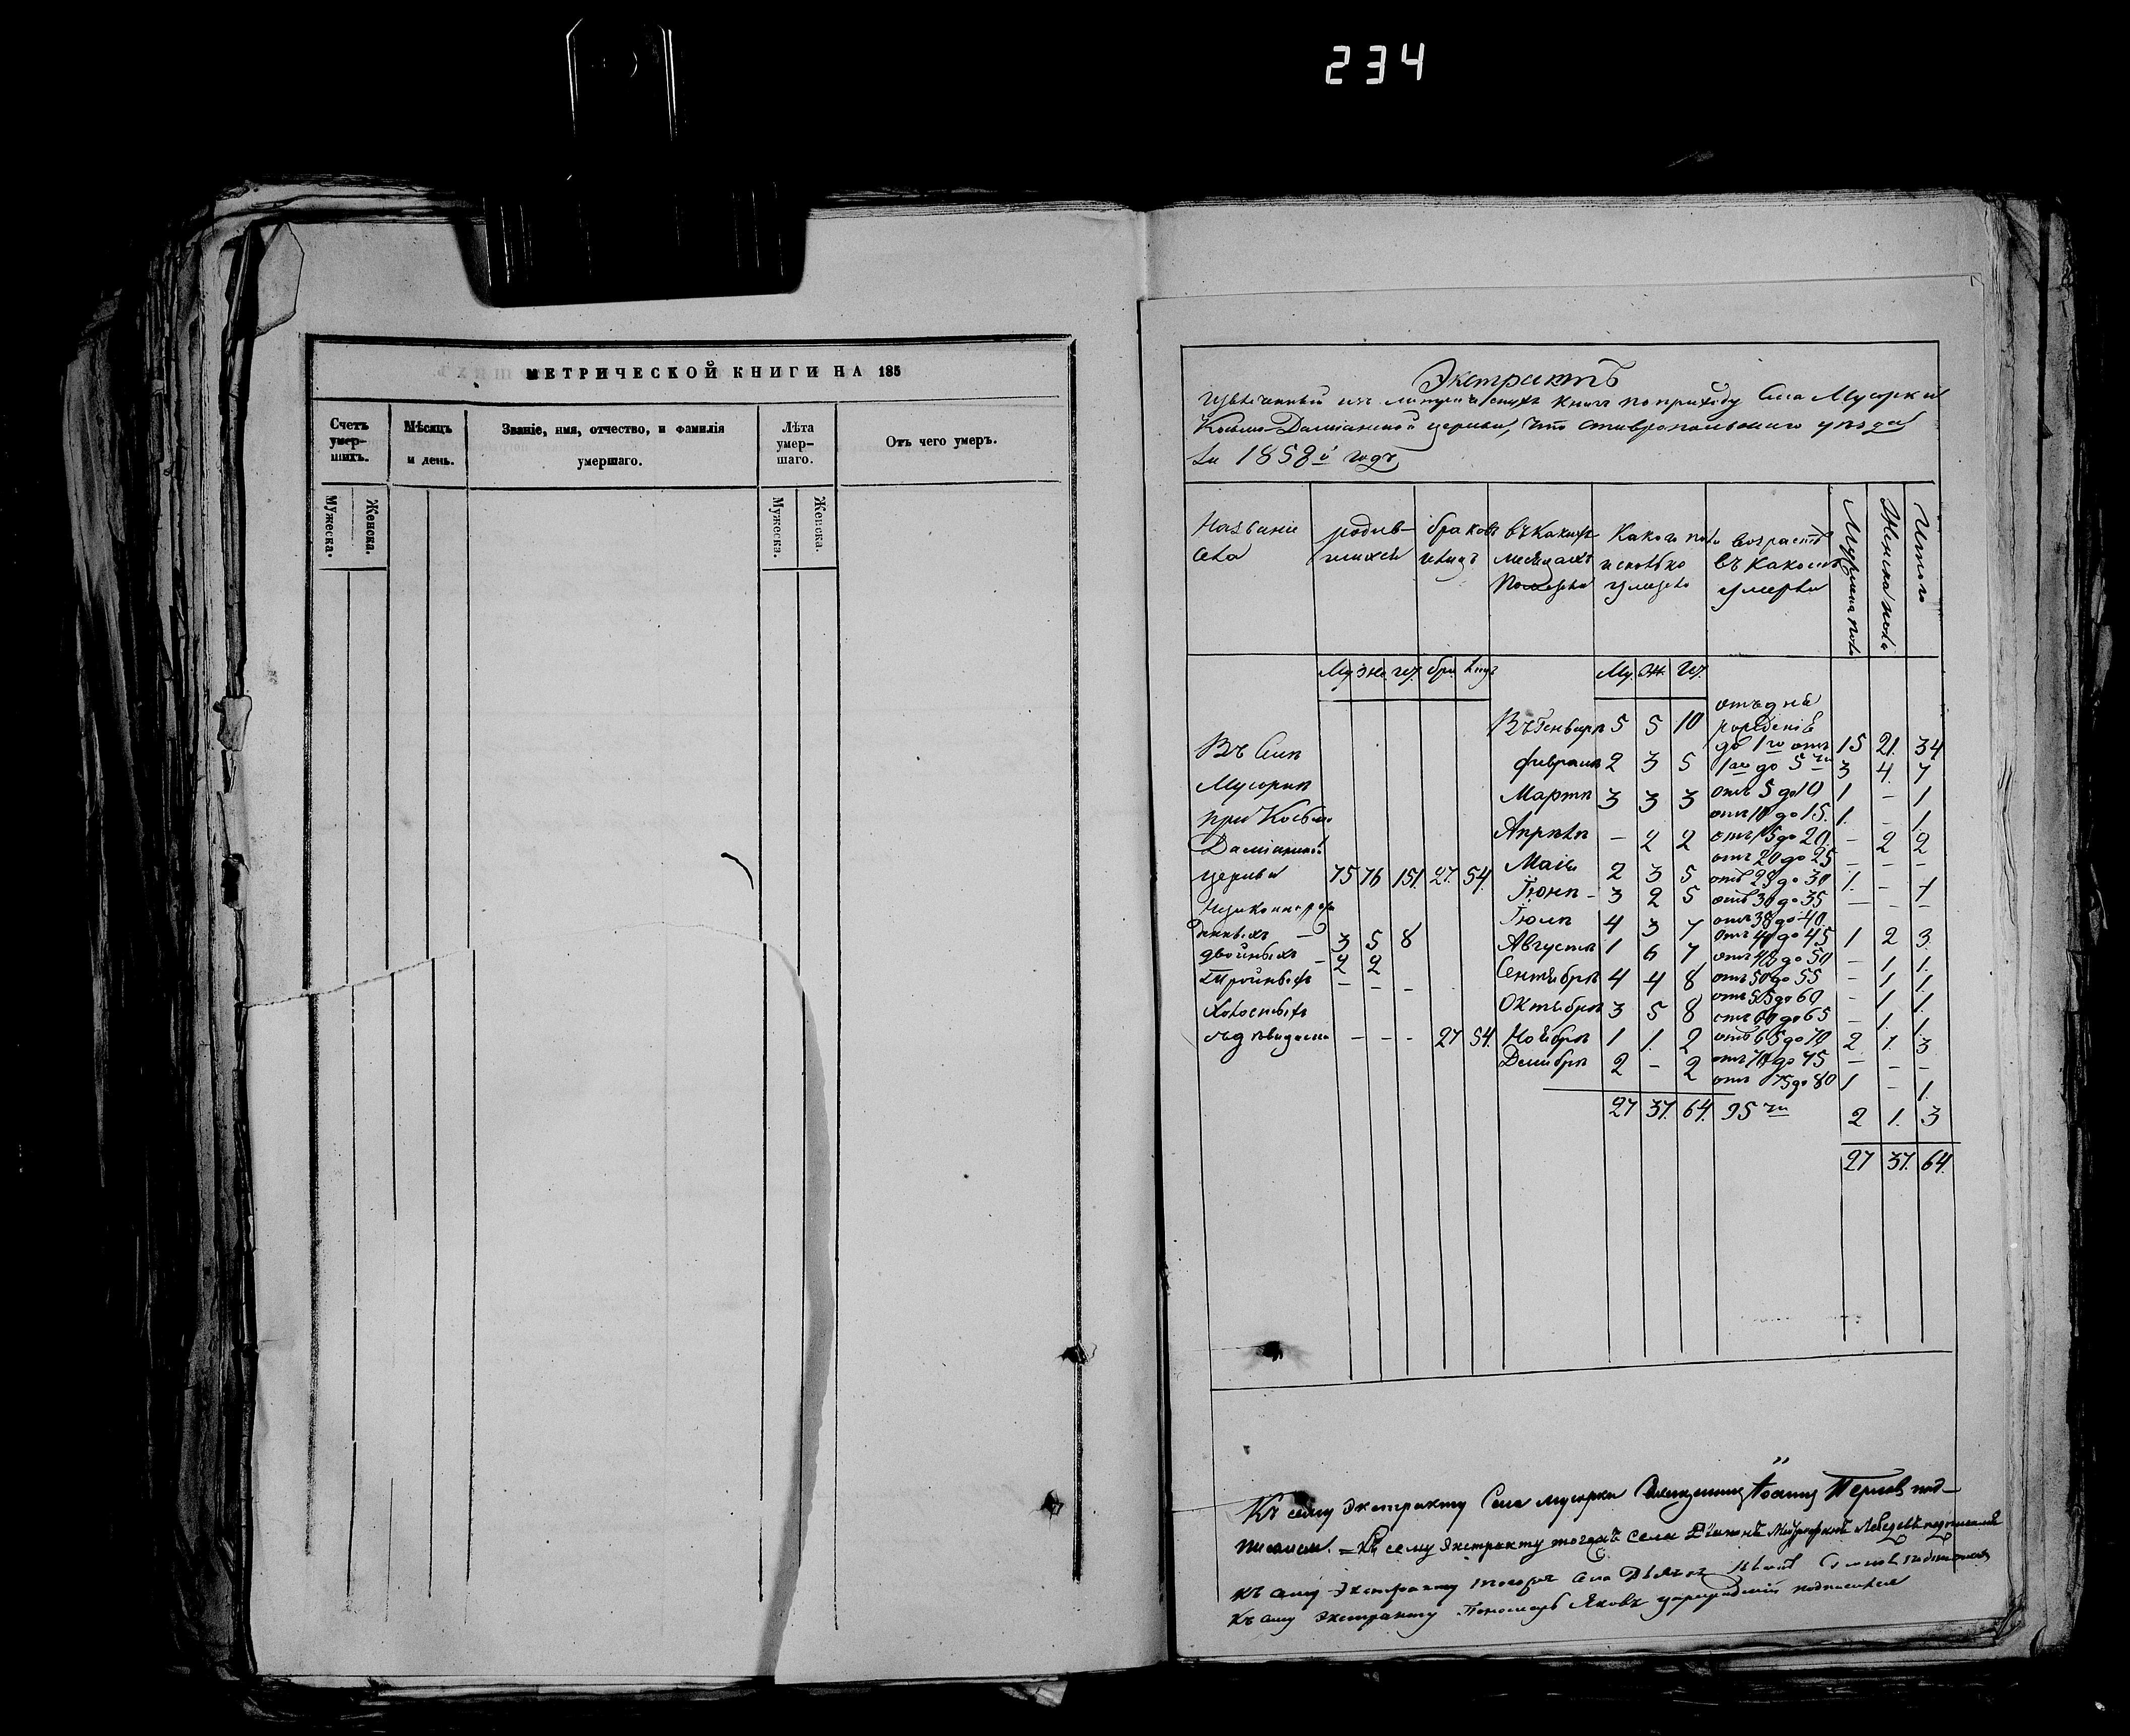 234
МЕТРИЧЕСКОЙ КНИГИ НА 185
Счетъ умер-шихъ.
Мѣсяцъ и день.
Званіе, имя, отчество, и фамилія умершаго.
Лѣта умер-шаго.
Отъ чего умеръ.
Мужеска. Женска.
Мужеска. Женска.
Экстрактъ
изъ книгъ по приходу села Мусорки
Космо-Даміанской церкви, что Ставропольскаго уѣзда
за 1858й годъ
Названіе села
родив-шихся
браковъ
въ какихъ месяцахъ
Какого пола и сколько умерло
возрастъ въ какомъ умерли
Мужеска пола
Женска пола
Итого
Му. Же. Ит.
Му. Ж. Ит.
Въ Генваре 5 5 10
отъ дня рожденія до 1го 15 21. 34
Въ Селе
Феврале 2 3 5
1го до 5ти 3 4. 7
Мусорке
Марте 3 3 3
отъ 5 до 10 1 - 1
при Космо
отъ 10 до 15. 1. - 1.
Даміанской
Апреле - 2 2
отъ 15 до 20. - 2 2
отъ 20 до 25 - - -
церкви 75 76 151. 27. 54.
Маіе 2 3 5
отъ 25 до 30 1. - 1
Іюне - 3 2 5
отъ 30 до 35 - - -
Іюле 4 3 7
отъ 35 до 40.
3 5 8
Августе 1 6 7
отъ 40 до 45 1 2 3.
двойныхъ - 2 2
отъ 45 до 50 - 1. 1.
Сентябре 4 4 8
отъ 50 до 55 - 1 1.
Тройныхъ - - -
отъ 55 до 60 - 1. 1.
Октябре 3 5 8
отъ 60 до 65 - 1. 1.
- - - 27 54.
Ноябре 1 1. 2
отъ 65 до 70 2 1. 3
Декабре 2 - 2
отъ 70 до 75 - - -
отъ 75 до 80 1 - 1.
27 37. 64.
95ти 2 1. 3
27 37. 64.
Къ сему Экстракту Села Мусорки Священникъ Іоаннъ под-
писался. = Къ сему Экстракту тогожъ села Діаконъ Митрофанъ Лебедевъ подписался
Къ сему Экстракту тогожъ села Дьячекъ
Къ сему Экстракту Пономарь Яковъ подписался